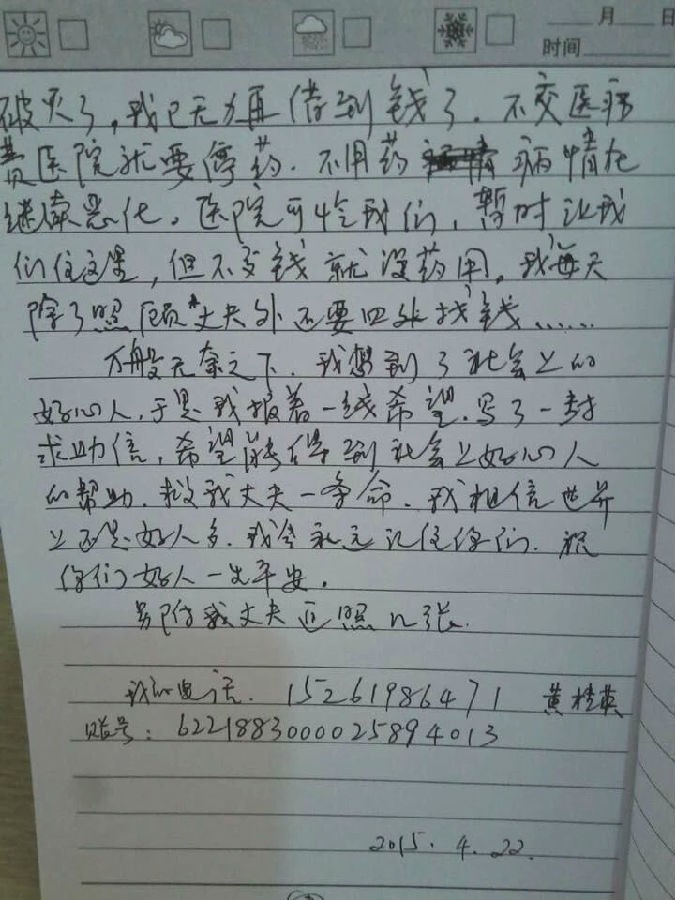 月 日
时间
破灭了，我已无力再借到钱了．不交医药
费医院就要停药．不用药病情在
继续恶化。医院可怜我们，暂时让我
们住这里，但不交钱就没药用，我每天
除了照顾丈夫外还要四处找钱……
万般无奈之下．我想到了社会上的
好心人，于是我报着一线希望．写了一封
求助信，希望能得到社会上好心人
的帮助．救我丈夫一条命．我相信世界
上还是好人多．我会永远记住你们．祝
你们好人一生平安。
另附我丈夫近照几张．
我的电话．15261986471 黄桂英
账号：6221883000025894013
2015．4．22．